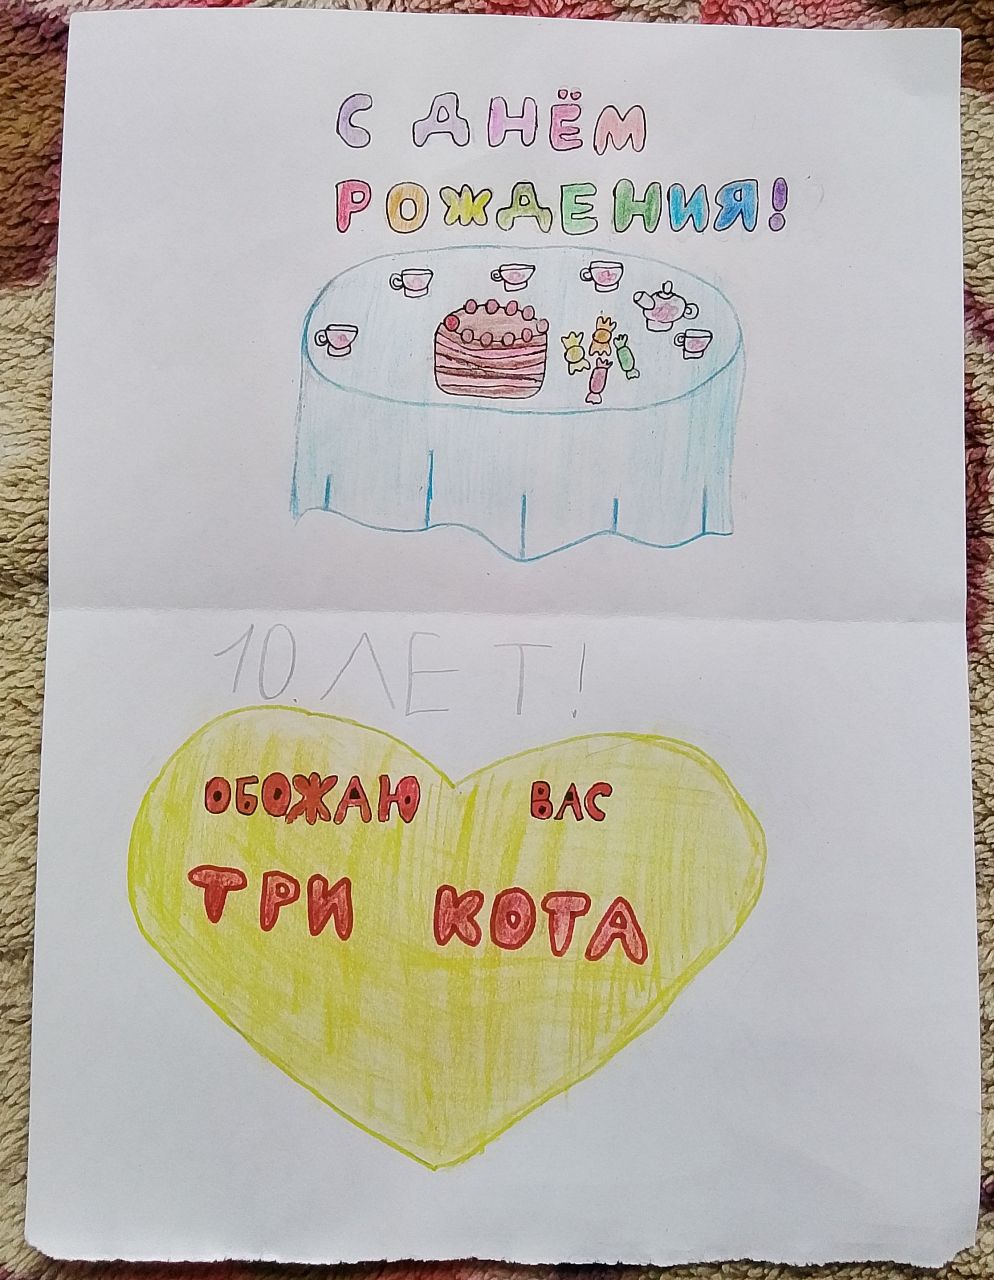 С ДНЁМ
РОЖДЕНИЯ!
10 ЛЕТ!
ОБОЖАЮ ВАС
ТРИ КОТА